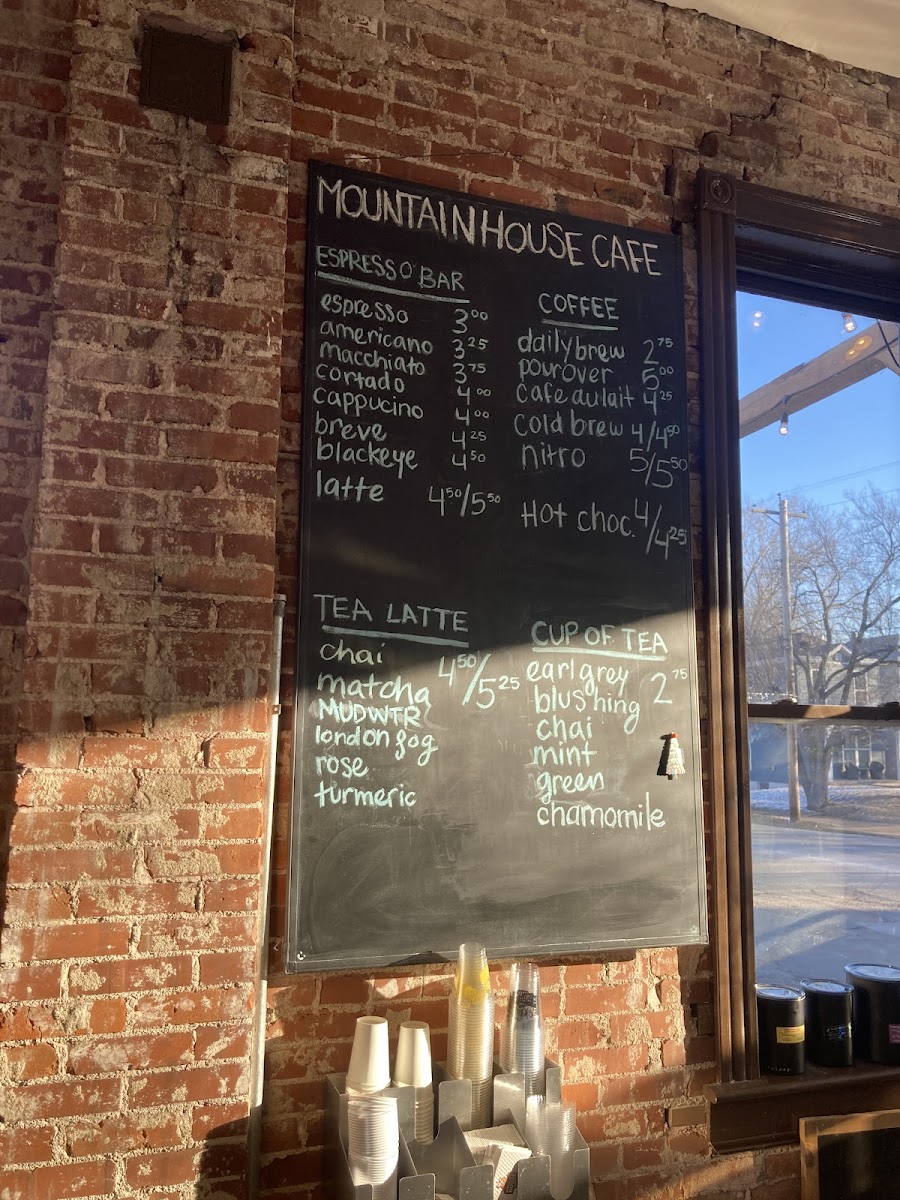 MOUNTAIN HOUSE CAFE
ESPRESSO BAR
espresso 3 00
americano 3 25
macchiato 3 75
cortado 4 00
cappucino 4 00
breve 4 25
blackeye 4 50
latte 4 50/5 50
COFFEE
daily brew 2 75
pourover 5 00
cafe au lait 4 25
cold brew 4/4 50
nitro 5/5 50
Hot choc. 4/4 25
TEA LATTE
chai 4 50/5 25
matcha
MUDWTR
london fog
rose
turmeric
CUP OF TEA
earl grey 2 75
blushing
chai
mint
green
chamomile